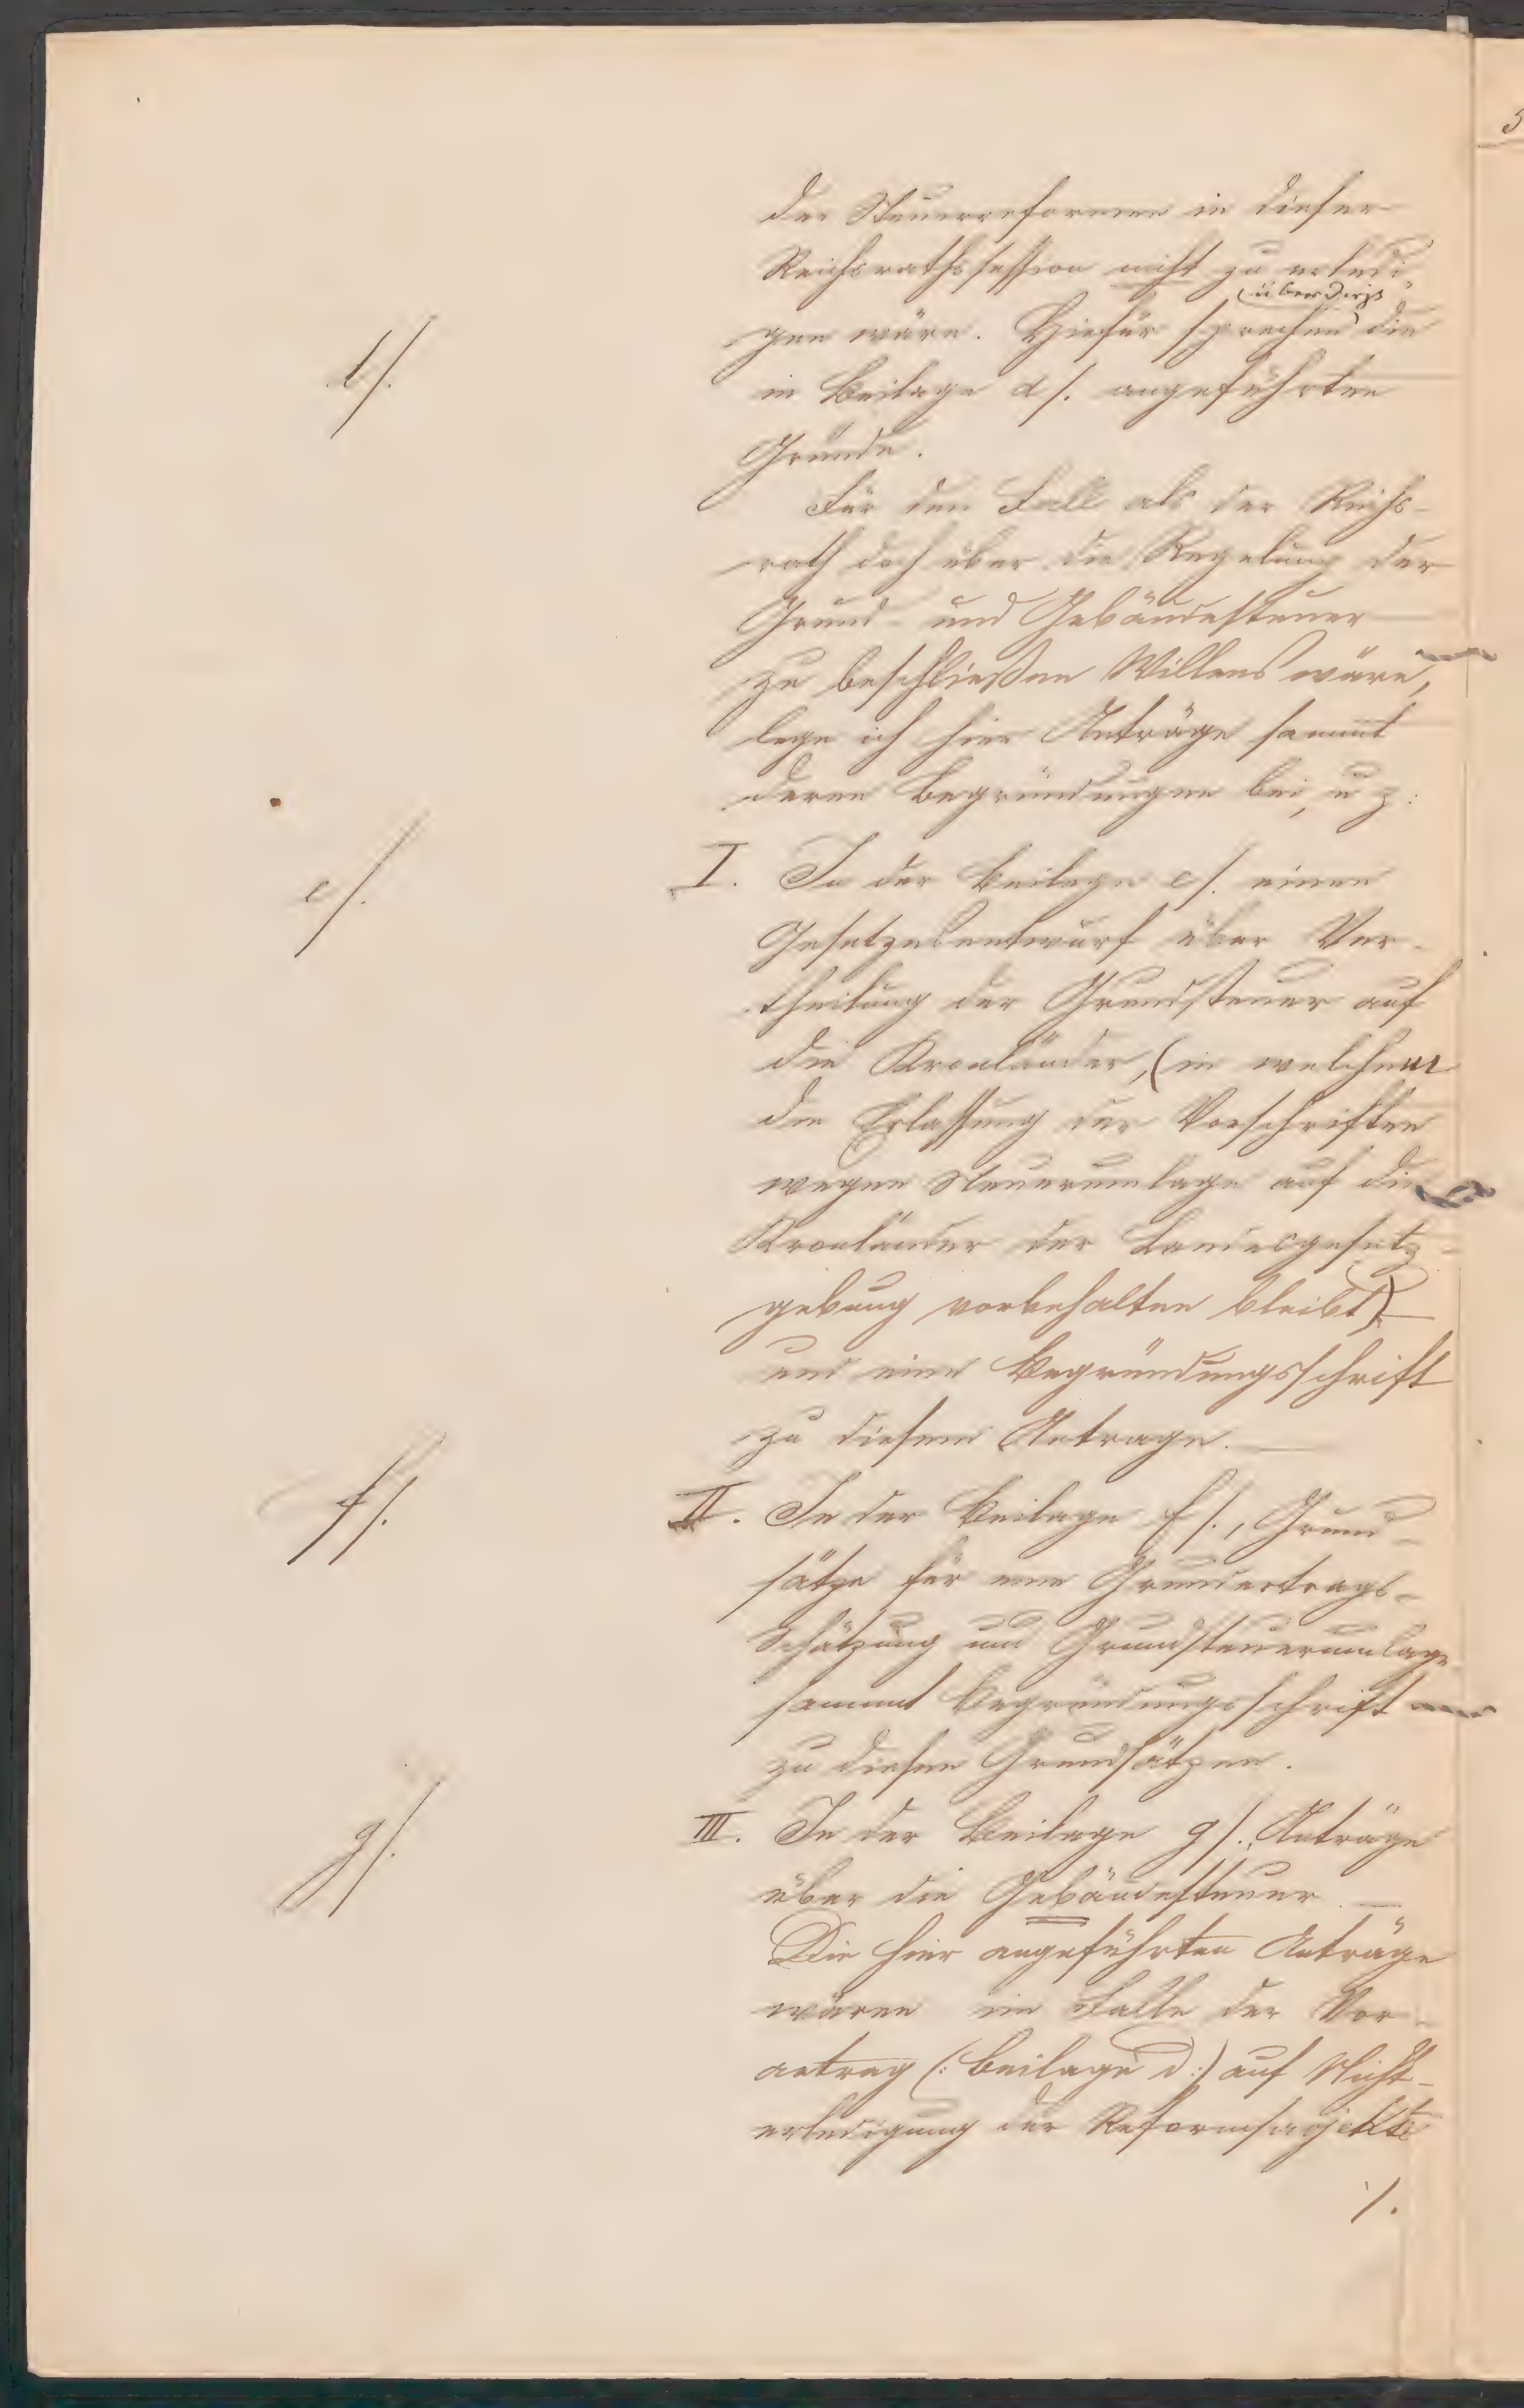 der Steuerreformen in dieser
Reichsrathssession nicht zu erledi-
überdieß
gen wäre. Hiefür sprechen die
d/.
in Beilage d/. angeführten
Gründe.
Für den Fall als der Reichs-
rath doch über die Regelung der
Grund- und Gebäudesteuer
zu beschließen Willens wäre,
lege ich hier Anträge sammt
deren Begründungen bei, u z:
e/.
I. In der Beilage e/. einen
Gesetzesentwurf über Ver-
theilung der Grundsteuer auf
die Kronländer, (in welchem
die Erlassung der Vorschriften
wegen Steuerumlage auf die
Kronländer der Landesgesetz-
gebung vorbehalten bleibt)
und eine Begründungsschrift
zu diesem Antrage.
f/.
II. In der Beilage f/., Grund-
sätze für eine Grundertrags-
Schätzung und Grundsteuerumlage
sammt Begründungsschrift
zu diesen Grundsätzen.
g/.
III. In der Beilage g/., Anträge
über die Gebäudesteuer.
Die hier angeführten Anträge
wären im Falle der Vor-
antrag (: Beilage d :) auf Nicht-
erledigung der Reformprojekte
/.